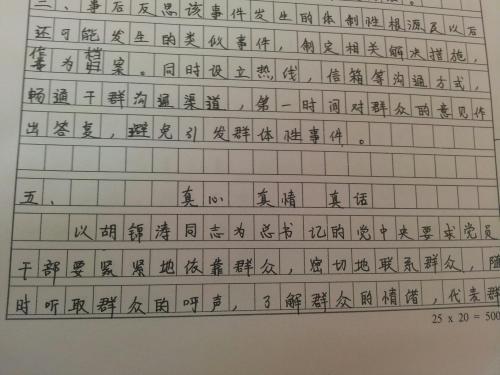 三、事后反思该事件发生的体制性根源及以后
还可能发生的类似事件，制定相关解决措施，
作为档案。同时设立热线，信箱等沟通方式，
畅通干群沟通渠道，第一时间对群众的意见作
出答复，避免引发群体性事件。
五、 真心 真情 真话
以胡锦涛同志为总书记的党中央要求党员
干部要紧紧地依靠群众，密切地联系群众，随
时听取群众的呼声，了解群众的情诸，代表群
25 x 20 = 500